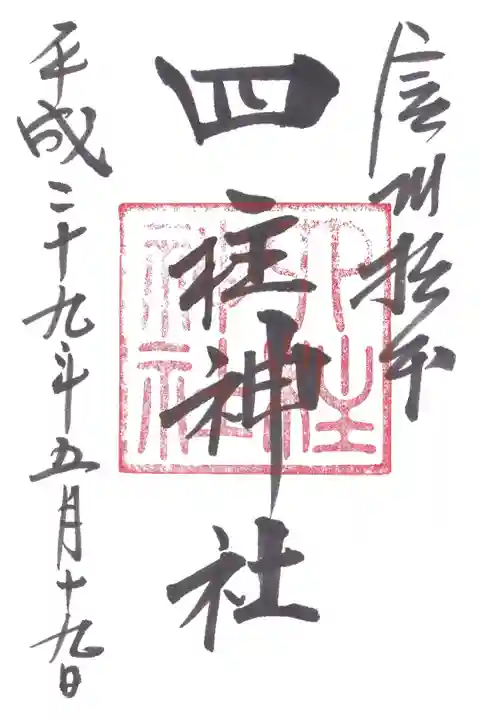 信州松本
四柱神社
四柱神社
平成二十九年五月十九日